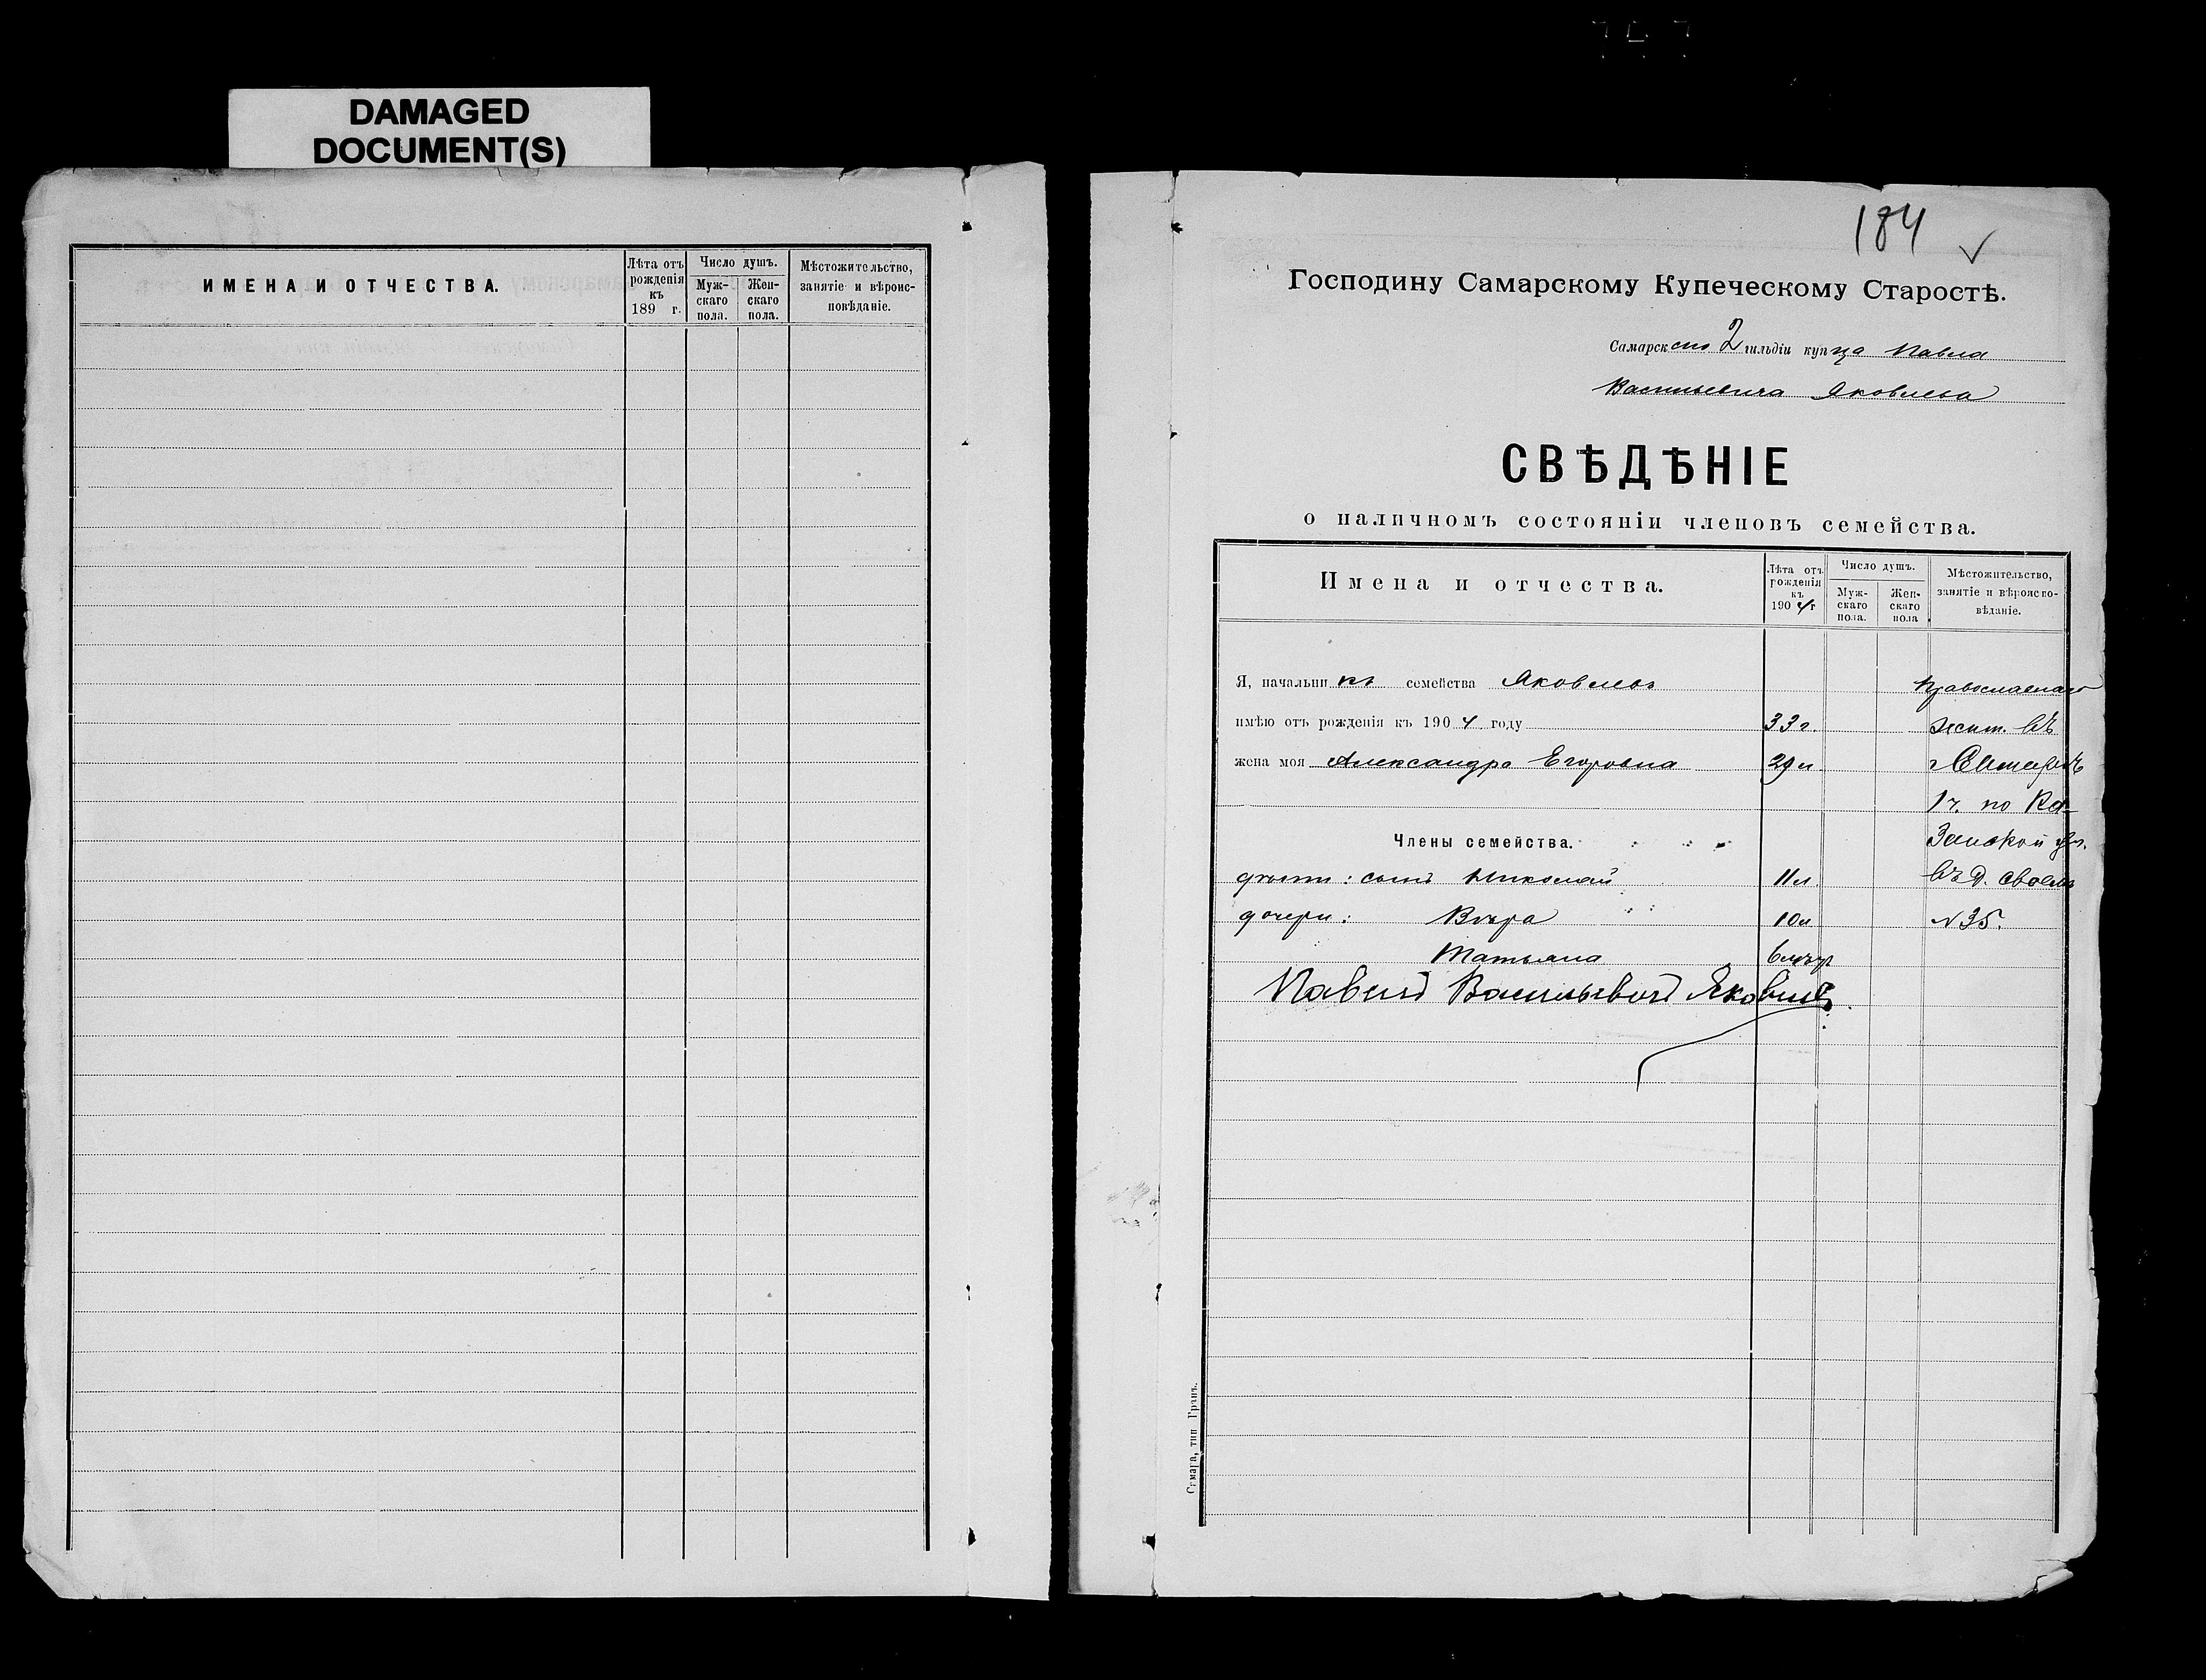 DAMAGED
DOCUMENT(S)
ИМЕНА И ОТЧЕСТВА.
Лѣта отъ рожденія къ 189 г.
Число душъ.
Мужскаго пола.
Женскаго пола.
Мѣстожительство, занятіе и вѣроисповѣданіе.
184
Господину Самарскому Купеческому Старостѣ.
Самарскаго 2 гильдіи купца Павла
Васильевича Яковлева
СВѢДѢНІЕ
о наличномъ состояніи членовъ семейства.
Имена и отчества.
Лѣта отъ рожденія къ 1904 г
Число душъ.
Мужскаго пола.
Женскаго пола
Мѣстожительство, занятіе и вѣроисповѣданіе.
Я, начальникъ семейства Яковлевъ Православнаго
имѣю отъ рожденія къ 1904 году 33 г. жит. въ
жена моя Александра Егоровна 29 л г Самарѣ
1 ч. по Ка-
Члены семейства. занской ул.
дѣти: сынъ Николай 11 л. въ д. своемъ
дочери: Вѣра 10 л № 35.
Татьяна
Павелъ Васильевичъ Яковлевъ
Самара, тип Гранъ.